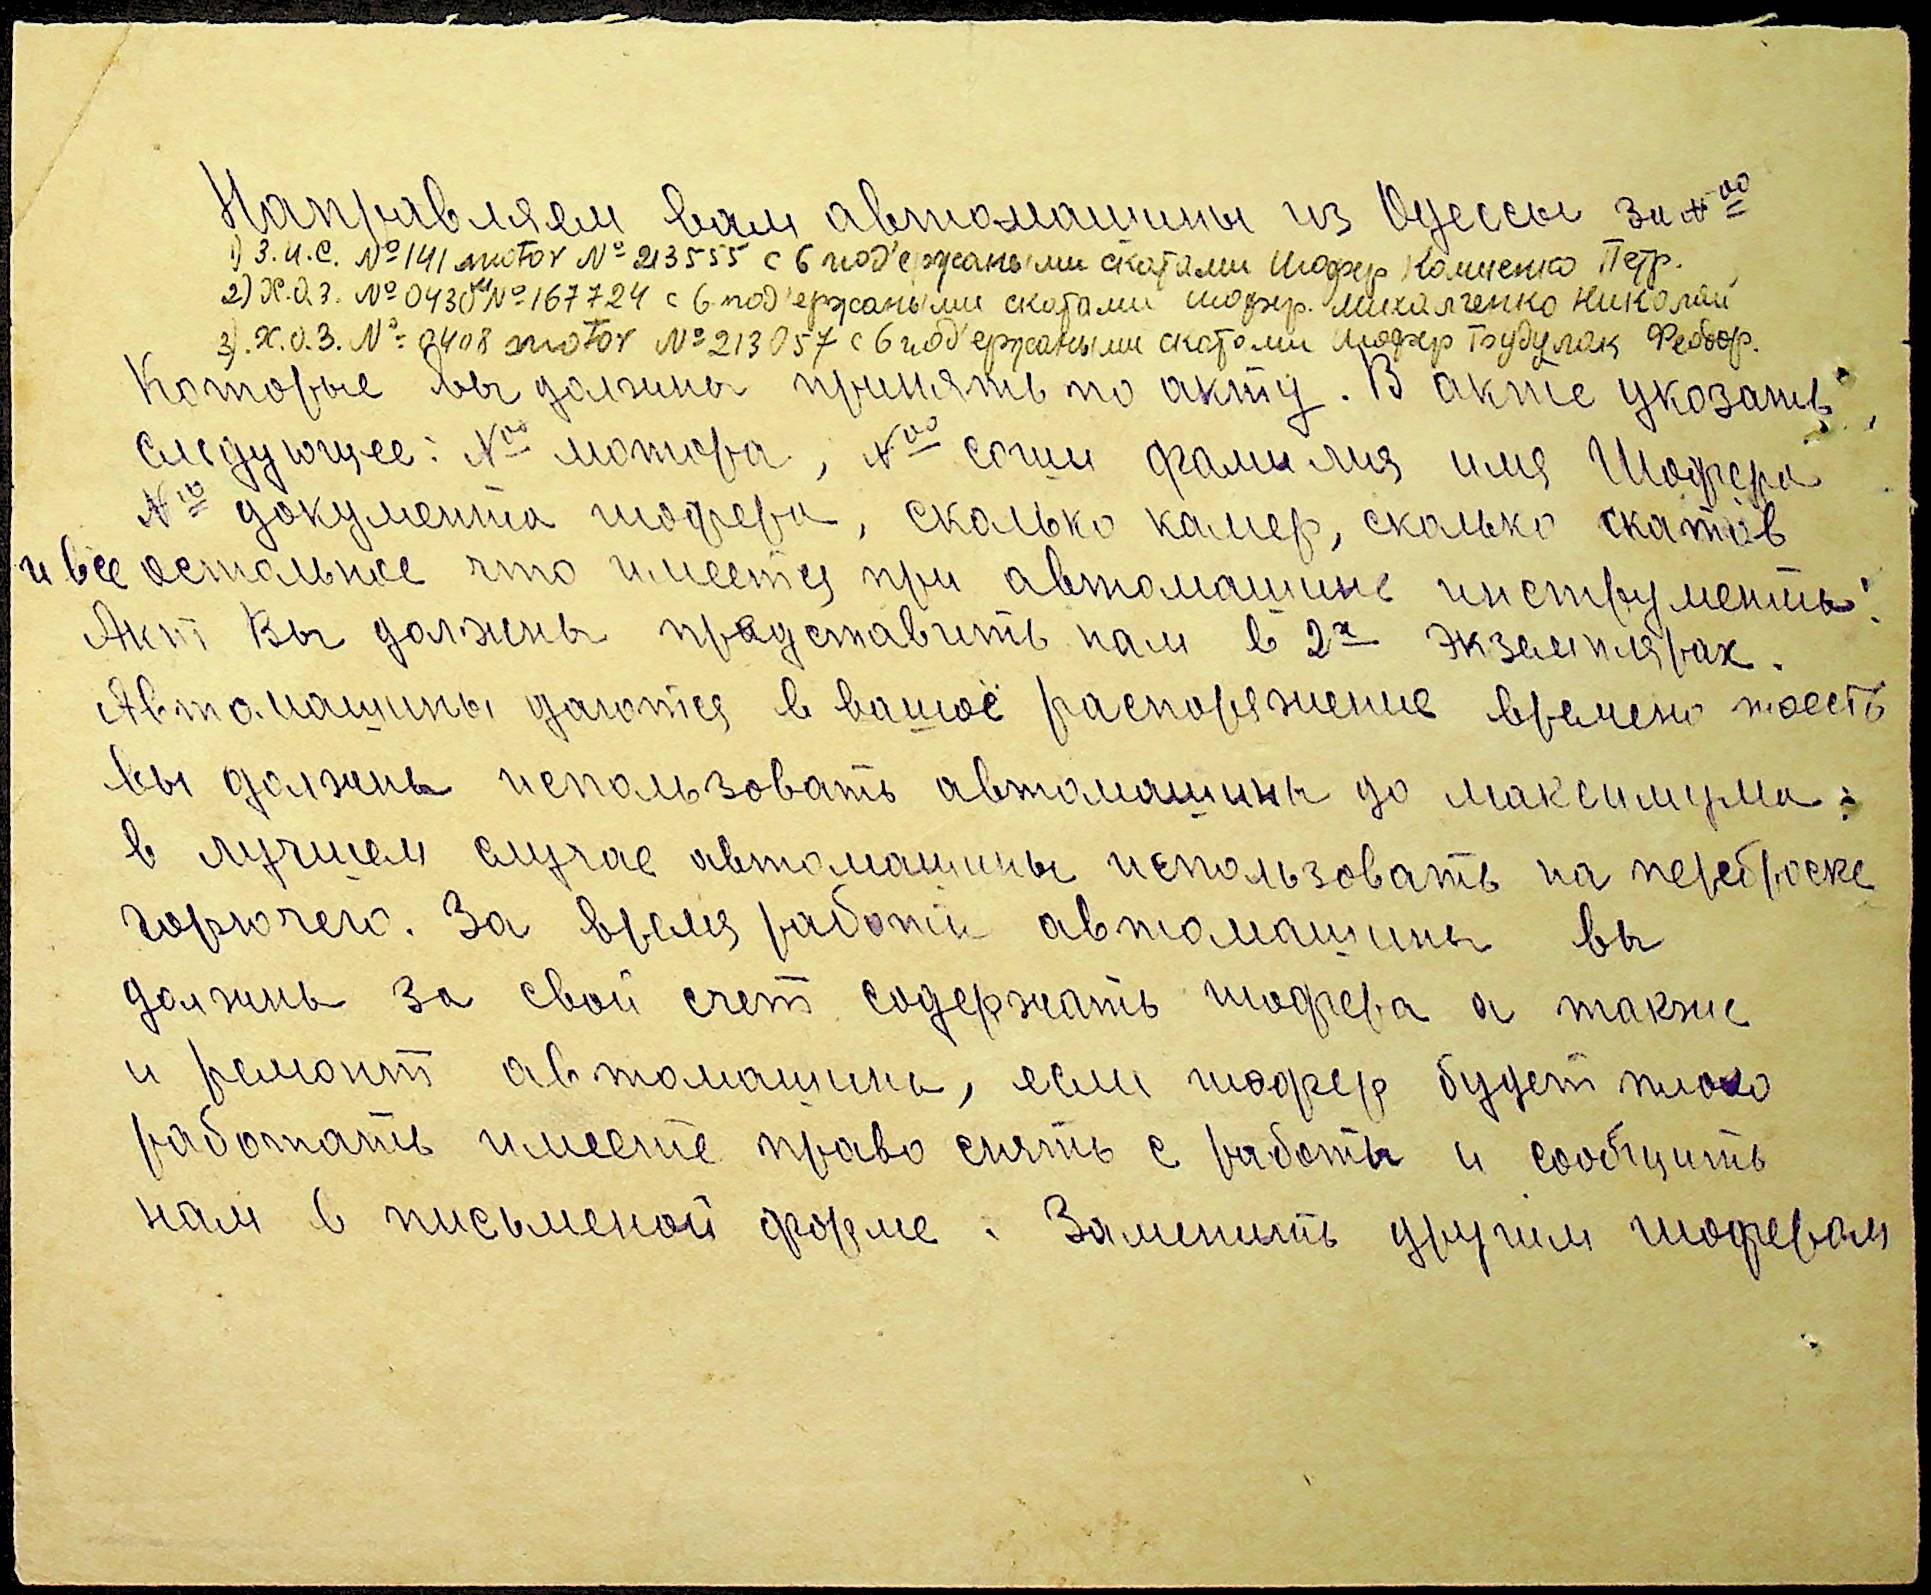 Направляем вам автомашины из Одессы за №оо
1) З.и.С. №141 motor №213555 с 6 под'ержаными скатами Шофер Комиенко Петр.
2) Х.О.З. №0430 м №167724 с 6 под'ержаными скатами шофер. Михалченко Николай
3). Х.О.З. №0408 motor №213057 с 6 под'ержаными скатами Шофер Федоор.
Которые вы должны принять по акту. В акте указать,
следующее: №оо мотора, №оо соши фамилия имя Шофера
№оо документа шофера, сколько камер, сколько скатов
и все остольное что имеется при автомашине инструменты.
Акт Вы должны представить нам в 2х экземплярах.
Автомашины даются в вашое распоряжение времено тоесть
вы должны использовать автомашины до максимума:
в лучшем случае автомашины использовать на переброске
горючего. За время работы автомашины вы
должны за свой счет содержать шофера а также
и ремонт автомашины, если шофер будет плохо
работать имеете право снять с работы и сообщить
нам в письменой форме. Заменить другим шофером